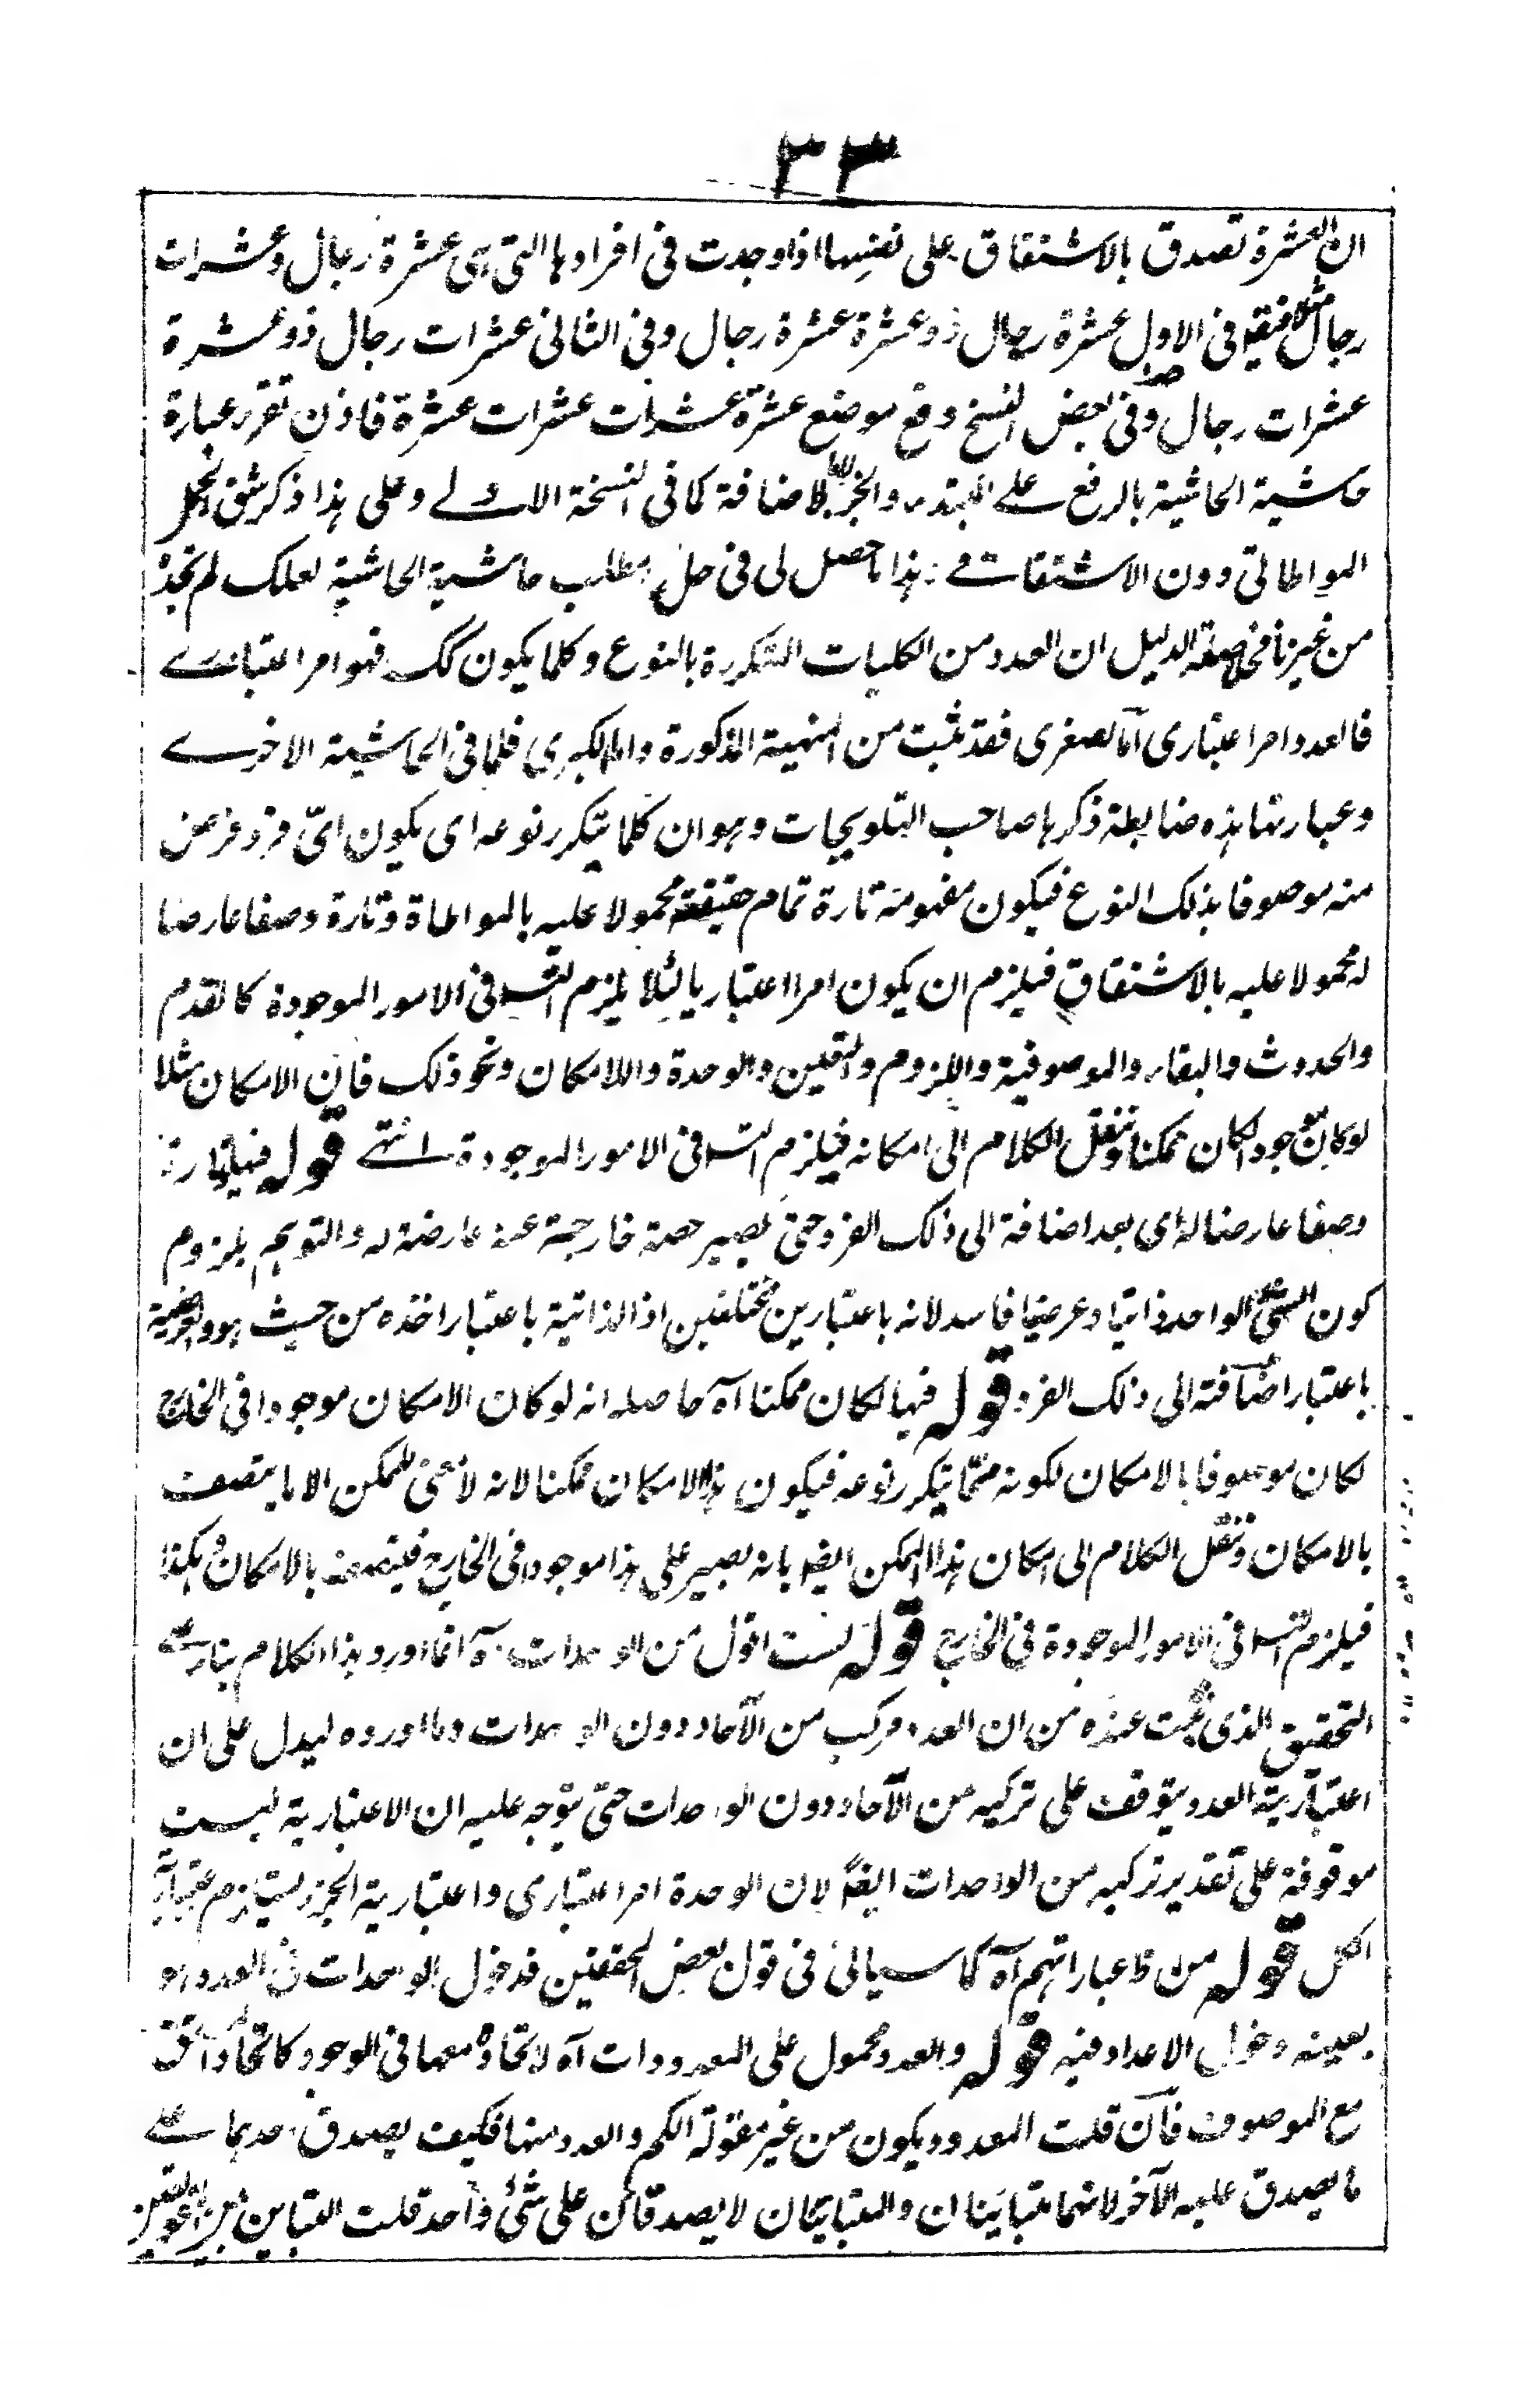 ٣٣
ان العشرة تصدق بالاشتقاق على نفسها اذا وجدت فى افرادها التى هى عشرة رجال وعشرات
رجال مثلا فيقال فى الاول عشرة رجال ذو عشرة عشرة رجال وفى الثانى عشرات رجال ذو عشرة
عشرات رجال وفى بعض النسخ وقع موضع عشرة عشرات عشرات عشرة فاذن تقرر عبارة
حاشية الحاشية بالرفع على المبتدء والخبر لا بالاضافة كما فى النسخة الاولے وعلى هذا ذكر شق الحمل
المواطاتى دون الاشتقاقے هذا ما حصل لى فى حل مطلب حاشية الحاشية لعلك لم تجده
من غيرنا فخلاصة الدليل ان العدد من الكليات المتكررة بالنوع وكلما يكون كك فهو امر اعتبارے
فالعدد امر اعتبارى اما الصغرى فقد ثبت من المنهية المذكورة واما الكبرى فلما فى الحاشية الاخرے
وعبارتها هذه ضابطة ذكرها صاحب التلويحات وهو ان كلما يتكرر نوعه اى يكون اىّ فرد فرض
منه موصوفا بذلك النوع فيكون مفهومه تارة تمام حقيقته محمولا عليه بالمواطاة وتارة وصفا عارضا
له محمولا عليه بالاشتقاق فيلزم ان يكون امرا اعتباريا لئلا يلزم التس فى الامور الموجودة كالقدم
والحدوث والبقاء والموصوفية واللزوم والتعين والوحدة واللامكان ونحو ذلك فان الامكان مثلا
لو كان موجودا لكان ممكنا وننقل الكلام الى امكانه فيلزم التس فى الامور الموجودة انتهے قوله فيها تارة
وصفا عارضا له اى بعد اضافة الى ذلك الفرد حتى يصير حصة خارجة عنه عارضة له والتوهم بلزوم
كون الشئ الواحد ذاتيا وعرضيا فاسد لانه باعتبارين مختلفين اذ الذاتية باعتبار اخذه من حيث هو والعرضية
باعتبار اضافته الى ذلك الفرد قوله فيها لكان ممكنا آه حاصله انه لو كان الامكان موجودا فى الخارج
لكان موصوفا بالامكان لكونه ممّا يتكرر نوعه فيكون هذا الامكان ممكنا لانه لا نعنى للممكن الا ما يتصف
بالامكان وننقل الكلام الى امكان هذا الممكن ايضا بانه يصير على هذا موجودا فى الخارج فيتصف بالامكان وهكذا
فيلزم التس فى الامور الموجودة فى الخارج قوله لست اقول من الوحدات آه انما اورد هذا الكلام بناء على
التحقيق الذى ثبت عنده من ان العدد مركب من الآحاد دون الوحدات وما اورده ليدل على ان
اعتبارية العدد يتوقف على تركبه من الآحاد دون الوحدات حتى يتوجه عليه ان الاعتبارية ليست
موقوفة على تقدير تركبه من الوحدات ايضا لان الوحدة امر اعتبارى واعتبارية الجزء يستلزم اعتبارية
الكل قوله من عباراتهم آه كما سياتى فى قول بعض المحققين فدخول الوحدات فى العدد هو
بعينه دخول الاعداد فيه قوله والعدد محمول على المعدودات آه لاتحاده معها فى الوجود كاتحاد المشتق
مع الموصوف فان قلت المعدود يكون من غير مقولة الكم والعدد منها فكيف يصدق احدهما علے
ما يصدق عليه الآخر لانهما متباينان والمتباينان لا يصدقان على شئ واحد قلت التباين بين